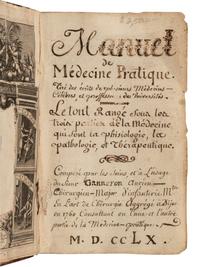 Manuel
de
Médecine Pratique.
Tiré des écrits de plusieurs Médecins
Célèbres et professeurs des Universités.
Le tout Rangé sous les
trois parties de la médecine
qui sont la phisiologie, la
pathologie, et Thérapeutique.
Composé par les soins et à l'usage
du Sieur Ganneron ancien
Chirurgien-Major d'infanterie. M.
En l'art de Chirurgie Aggrégé à Dijon
en 1760 Consultant en l'une et l'autre
partie de la Médecine-pratique.
M. D. CCLX.